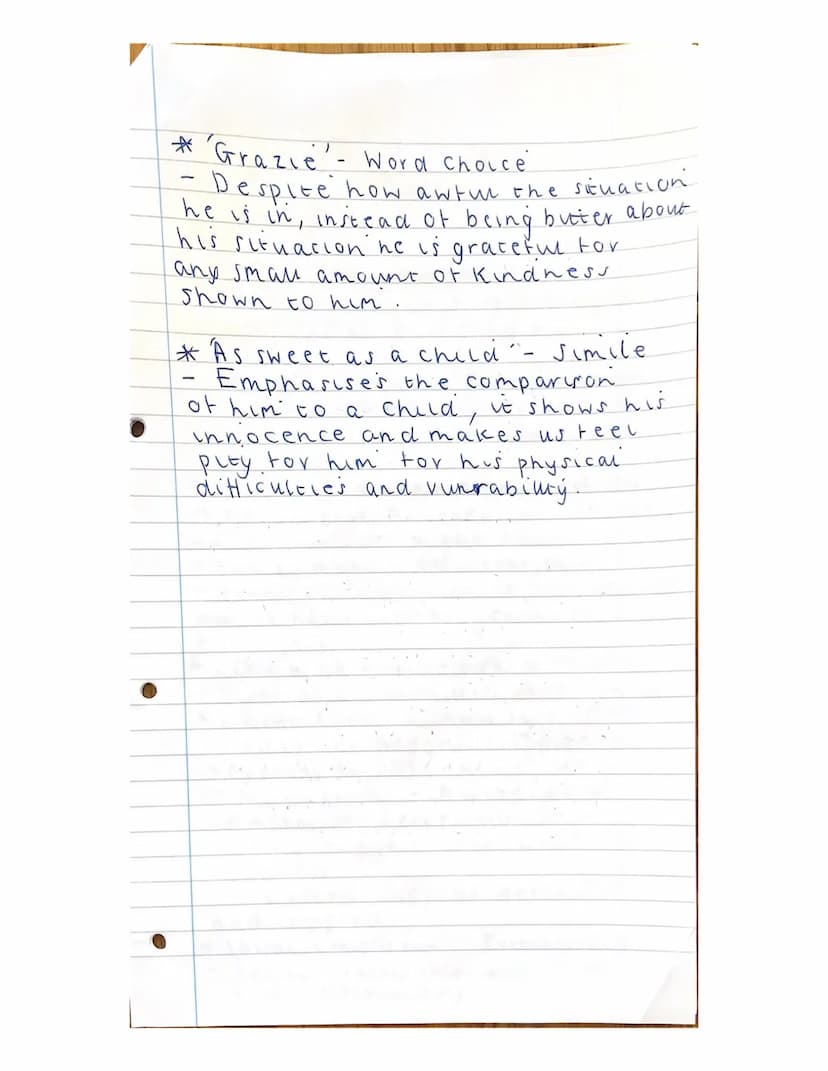 * 'Grazie' - Word Choice
- Despite how awful the situation
he is in, instead of being bitter about
his situation he is grateful for
any small amount of kindness
shown to him.
* 'As sweet as a child' - Simile
- Emphasises the comparison
of him to a child, it shows his
innocence and makes us feel
pity for him for his physical
difficulties and vunrability.